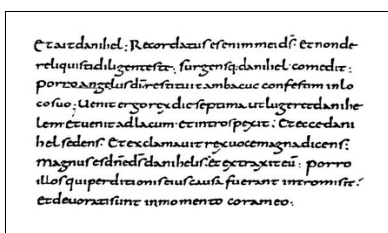 Et ait danihel; Recordatus es enim mei dς̄. Et non de
reliquisti diligentes te; surgensq; danihel comedit;
porro angelus dn̄i restituit ambacuc confestim in lo
co suo; Uenit ergo rex die septima ut lugeret danihe
lem et uenit ad lacum et introspexit; Et ecce dani
hel sedens; Et exclamauit rex uoce magna dicens;
magnus es dn̄e ds̄ danihelis; et extraxit eū; porro
illos qui perditionis eius causa fuerant intromisit;
et deuorati sunt in momento coram eo;